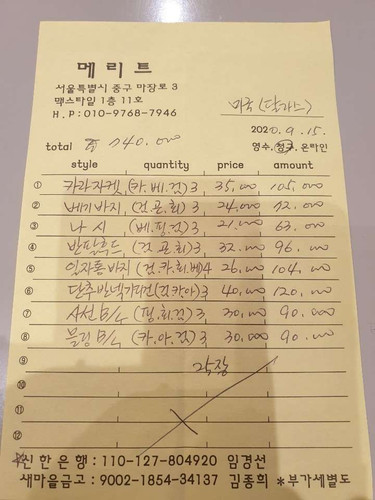 메리트
서울특별시 중구 마장로 3
맥스타일 1층 11호
H.P:010-9768-7946
미국 (달라스)
2020. 9. 15.
total 740.000
영수, 청구, 온라인
style quantity price amount
① 카라자켓, (카.베.검) 3, 35,000 105,000
② 베기바지, (검.곤.회) 3, 24,000 72,000
③ 나시 (베.핑.검) 3, 21,000 63,000
④ 반팔후드 (검.곤.회) 3, 32,000 96,000
⑤ 일자통바지 (검.카.회.베) 4 26,000 104,000
⑥ 단추반넥가디건 (검.카.아) 3, 40,000 120,000
⑦ 사선 B/L (핑.회.검) 3, 30,000 90,000
⑧ 블링 B/L (카.아.검) 3, 30,000 90,000
⑨
⑩
⑪
⑫
신한은행 : 110-127-804920 임경선
새마을금고 : 9002-1854-34137 김종희 *부가세별도